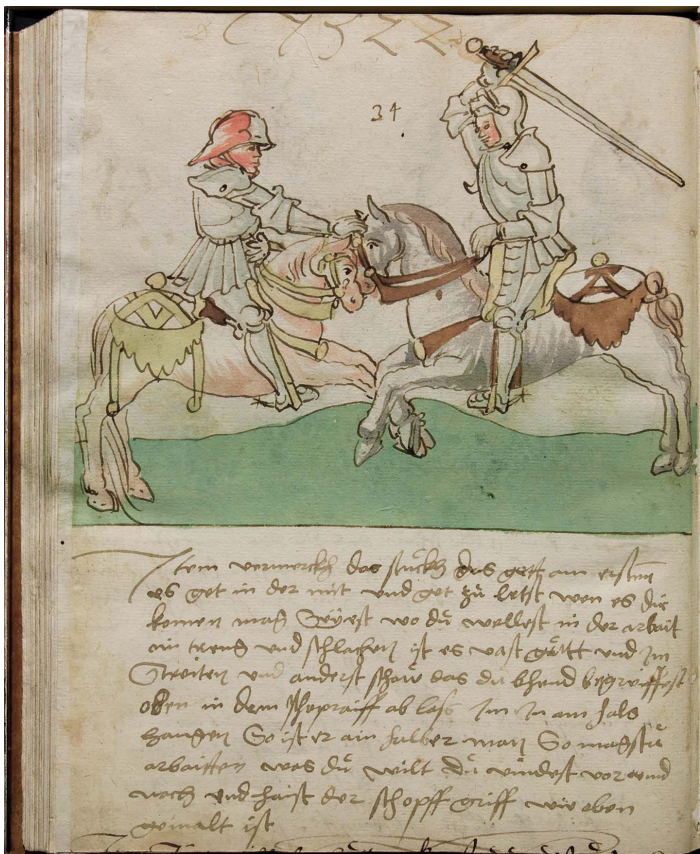 1522
34
Item vermerckh das stuckh das gett am ersten
es get in der mit und get zu letst wen es dir
komen mag Seyest wo du wellest in der arbait
ein treng und schlachen ist es vast gutt und Im
Streiten und anderst schaw das du bhend begreiffest
oben in dem ab lass Im In am hals
hangen So ist er ain halber man So magstu
arbaitten was du wilt Du vindest vor und
nach und haist der schopff griff wie oben
gemalt ist